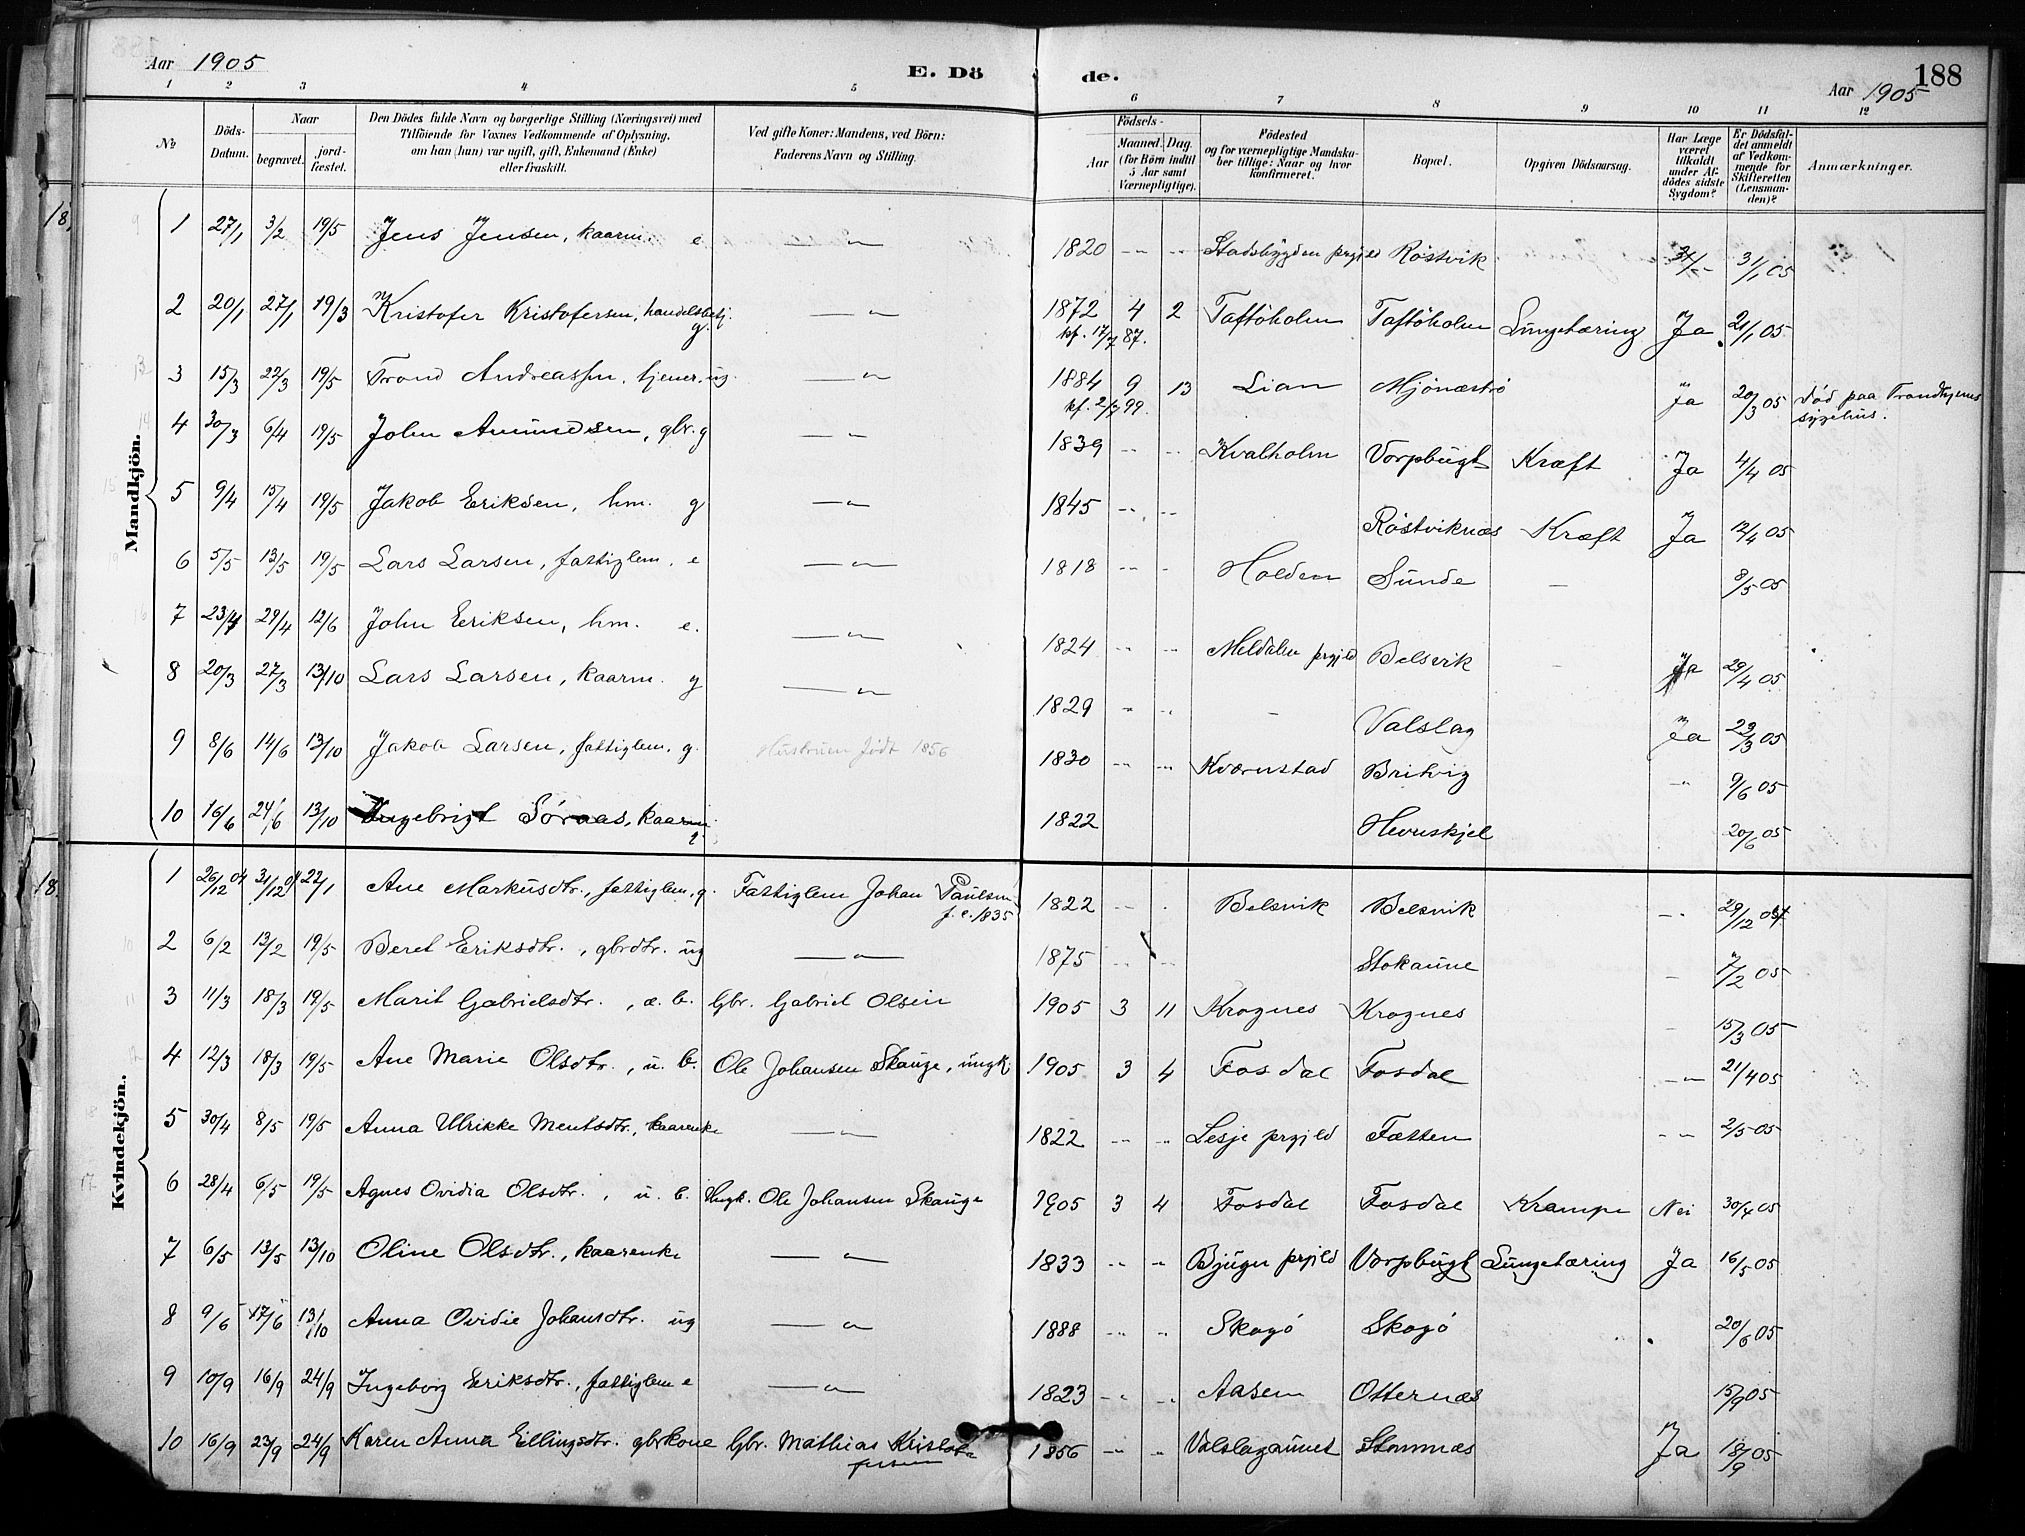 Aar 1905
E. Dö de.
188
Aar 1905
1 2 3 4 5 6 7 8 9 10 11 12
No
Döds-Datum.
Naar
begravet.
jord-fæstet.
Den Dödes fulde Navn og borgerlige Stilling (Næringsvei) med
Tilföiende for Voxnes Vedkommende af Oplysning,
om han (hun) var ugift, gift, Enkemand (Enke)
eller fraskilt.
Ved gifte Koner: Mandens, ved Börn:
Faderens Navn og Stilling.
Födsels-
Aar
Maaned. Dag.
(for Börn indtil
5 Aar samt
Værnepligtige).
Födested
og for værnepligtige Mandska-
ber tillige: Naar og hvor
konfirmeret.
Bopæl.
Opgiven Dödsaarsag.
Har Læge
været
tilkaldt
under Af-
dödes sidste
Sygdom?
Er Dödsfal-
det anmeldt
af Vedkom-
mende for
Skifteretten
(Lensman-
den)?
Anmærkninger.
Mandkjön.
1 27/1 3/2 19/5 Jens Jensen, kaarm. e — " — 1820 Stadsbygden prgjld Røstvik 31/1 05
2 20/1 27/1 19/3 Kristofer Kristofersen, handelsbetj. g. — " — 1872 4 2 Taftøholm Taftøholm Lungetæring Ja 21/1 05
kf. 17/7 87.
3 15/3 22/3 19/5 Trond Andreassen, tjener, ug. — " — 1884 9 13 Lian Mjønæstrø Ja 20/3 05 Død paa Trondhjems
kf. 2/7 99. sygehus.
4 30/3 6/4 19/5 John Amundsen, gbr. g — " — 1839 Kvalholm Vorpbugt Kræft Ja 4/4 05
5 9/4 15/4 19/5 Jakob Eriksen, hm. g — " — 1845 Røstviknæs Kræft Ja 12/4 05
6 5/5 13/5 19/5 Lars Larsen, fattiglem, e — " — 1818 Holden Sunde — 8/5 05
7 23/4 29/4 12/6 John Eriksen, hm. e. — " — 1824 Meldalen prgjld Belsvik Ja 29/4 05
8 20/3 27/3 13/10 Lars Larsen, kaarm. g — " — 1829 Valslag Ja 23/3 05
9 8/6 14/6 13/10 Jakob Larsen, fattiglem, g. Hustruen født 1856 1830 Kværnstad Britvig " 9/6 05
10 16/6 24/6 13/10 Ingebrigt Søraas, kaarm. 1822 Hevnskjel 20/6 05
Kvindekjön.
1 26/12 04 31/12 04 22/1 Ane Markusdtr., fattiglem, g. Fattiglem Johan Paulsen f. e. 1835 1822 Belsvik Belsvik 29/12 04
2 6/2 13/2 19/5 Beret Eriksdtr., gbrdtr. ug — " — 1875 Stokaune 7/2 05
3 11/3 18/3 19/5 Marit Gabrielsdtr., æ. b. Gbr. Gabriel Olsen 1905 3 11 Krognes Krognes 15/3 05
4 12/3 18/3 19/5 Ane Marie Olsdtr., u. b. Ole Johansen Skauge, ungk. 1905 3 4 Fosdal Fosdal 21/4 05
5 30/4 8/5 19/5 Anna Ulrikke Mentsdtr., kaarenke — " — 1822 Lesje prgjld Fætten 2/5 05
6 28/4 6/5 19/5 Agnes Ovidia Olsdtr., u. b. Ungk. Ole Johansen Skauge 1905 3 4 Fosdal Fosdal Krampe Nei 30/4 05
7 6/5 13/5 13/10 Oline Olsdtr., kaarenke — " — 1833 Bjugn prgjld Vorpbugt Lungetæring Ja 16/5 05
8 9/6 17/6 13/10 Anna Ovidie Johansdtr. ug — " — 1888 Skogø Skogø 20/6 05
9 10/9 16/9 24/9 Ingeborg Eriksdtr., fattiglem e — " — 1823 Aasen Otternæs 15/9 05
10 16/9 23/9 24/9 Karen Anna Ellingsdtr. gbrkone Gbr. Mathias Kristofersen 1856 Valslagaunet Stamnæs Ja 18/9 05